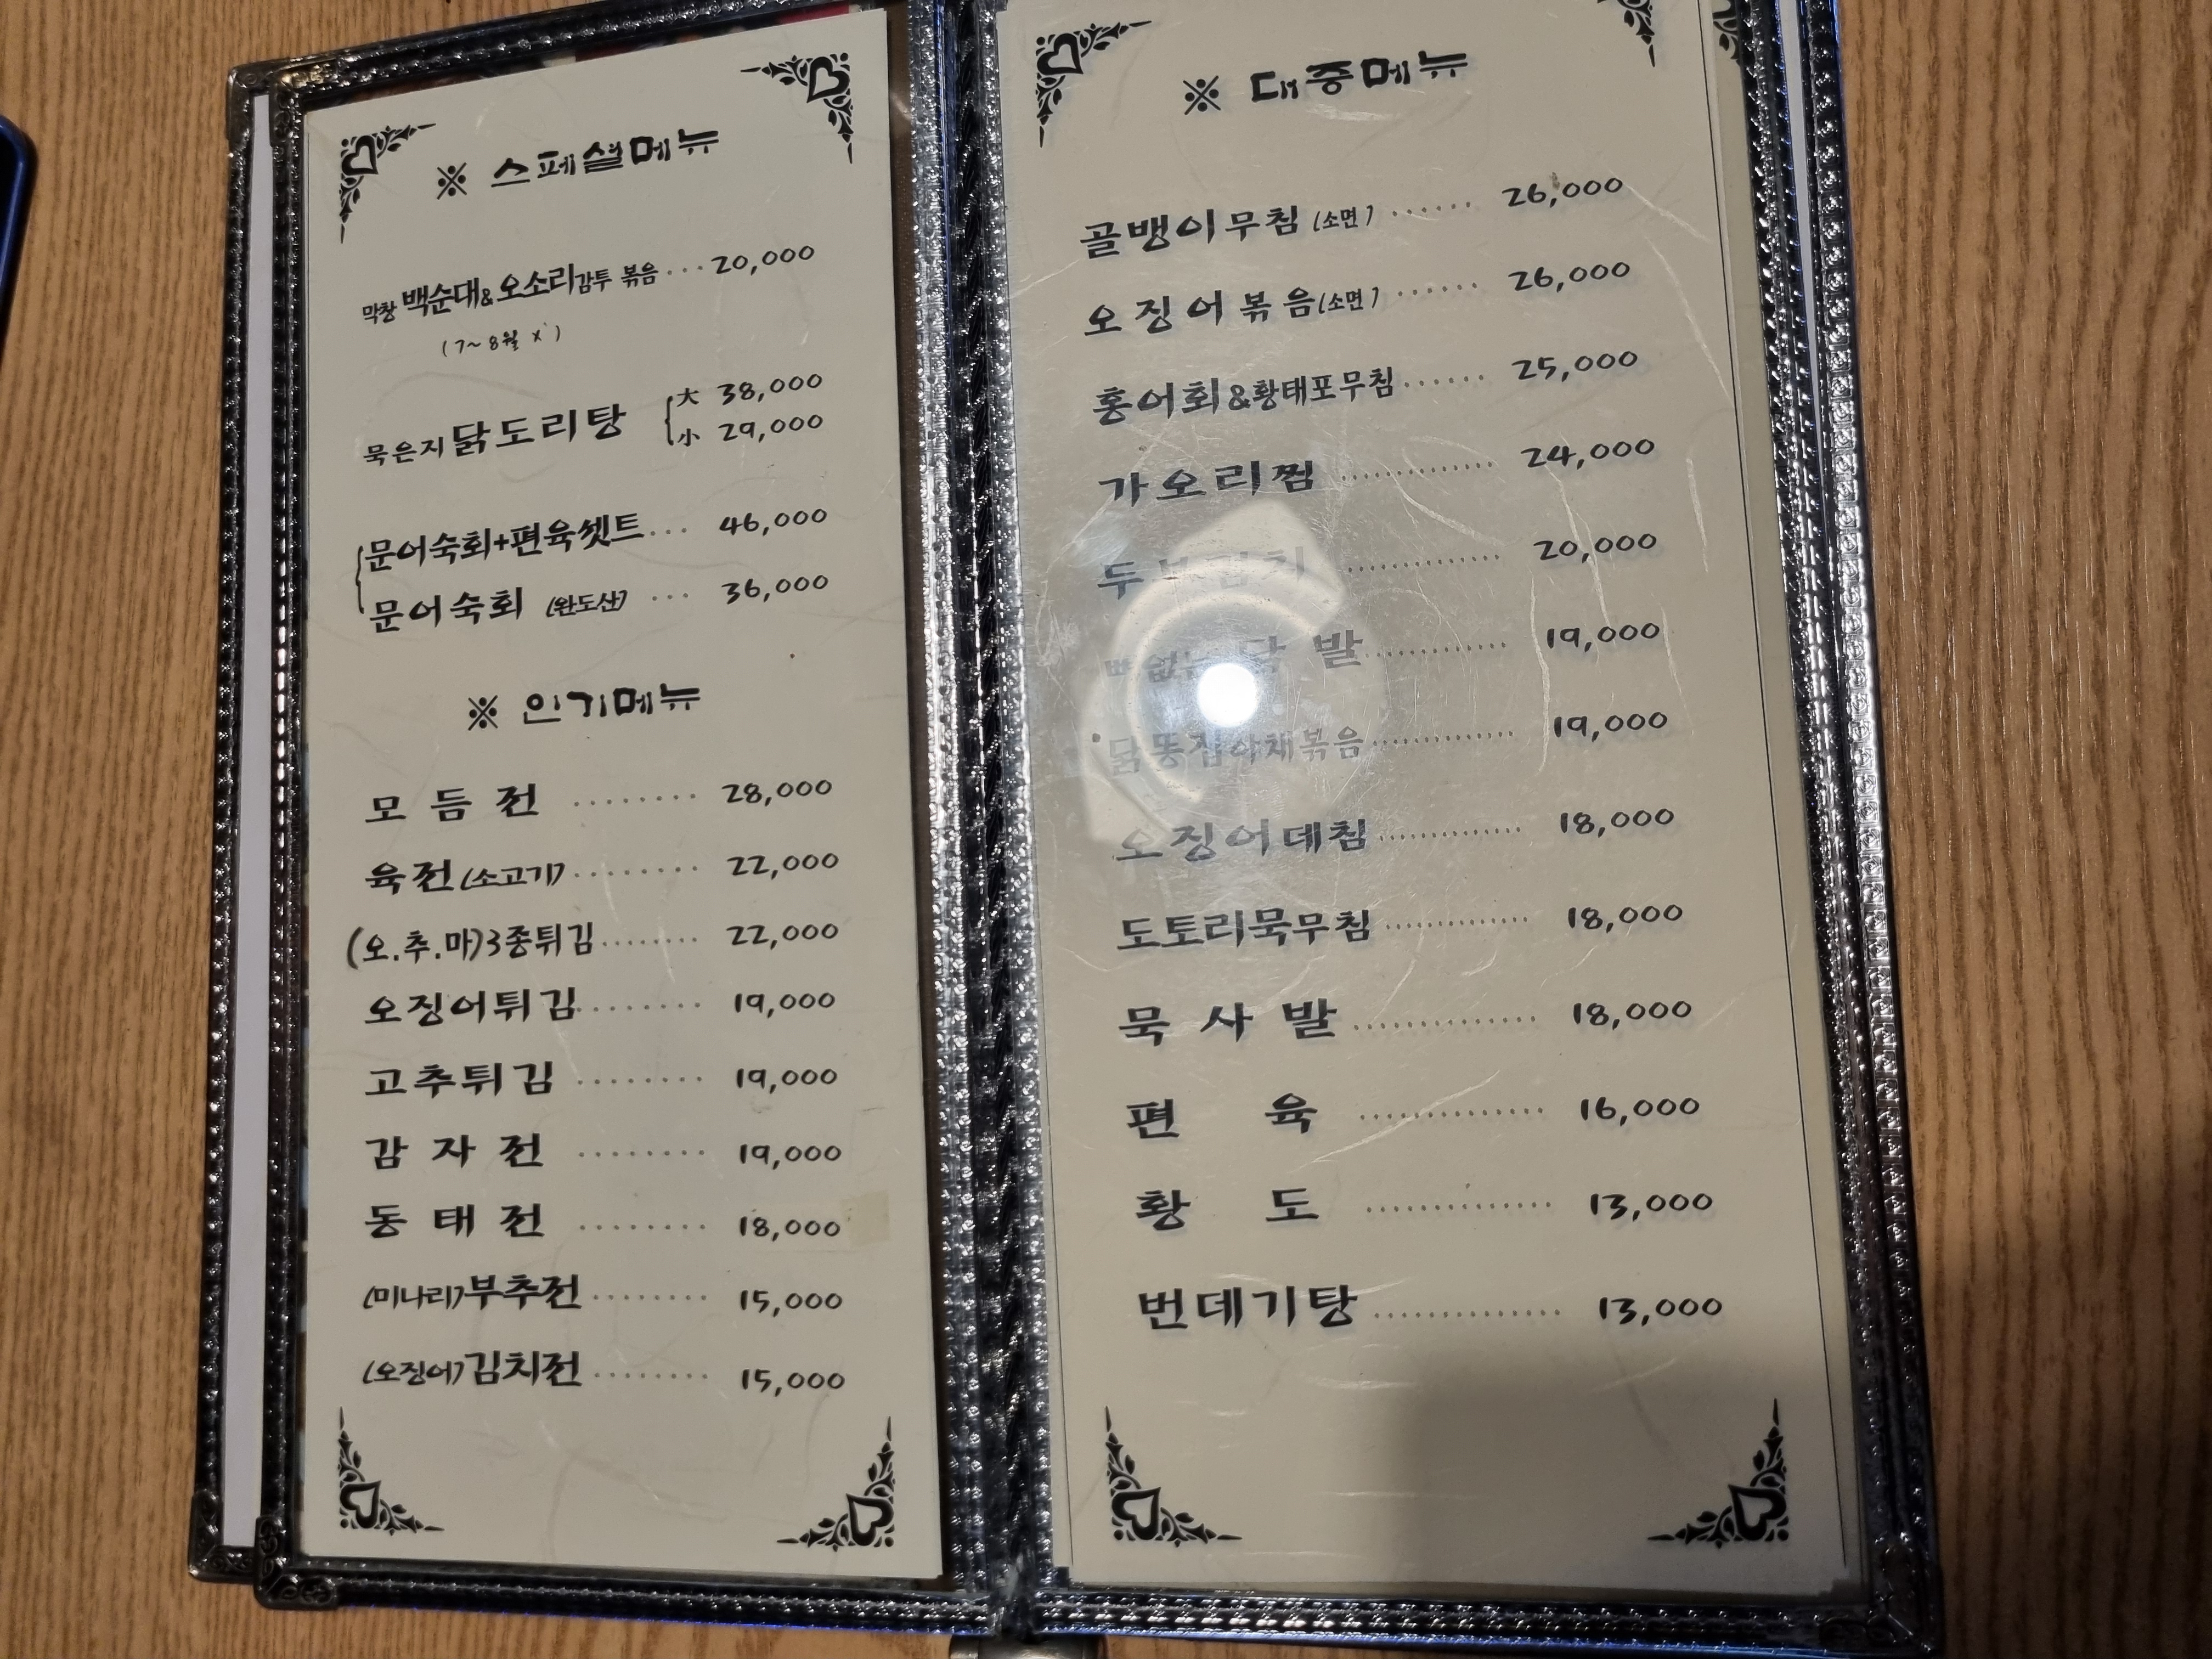 ※ 스페셜메뉴
막창 백순대&오소리감투 볶음 ··· 20,000
(7~8월 x)
묵은지 닭도리탕 大 38,000
小 29,000
문어숙회+편육셋트 ··· 46,000
문어숙회 (완도산) ··· 36,000
※ 인기메뉴
모듬전 ········ 28,000
육전(소고기) ········ 22,000
(오.추.마)3종튀김 ········ 22,000
오징어튀김 ········ 19,000
고추튀김 ········ 19,000
감자전 ········ 19,000
동태전 ········ 18,000
(미나리)부추전 ········ 15,000
(오징어)김치전 ········ 15,000
※ 대중메뉴
골뱅이무침 (소면) ······ 26,000
오징어볶음(소면) ······ 26,000
홍어회&황태포무침 ······ 25,000
가오리찜 ············ 24,000
두부김치 ············ 20,000
뼈없는 닭발 ············ 19,000
닭똥집야채볶음 ············ 19,000
오징어데침 ············ 18,000
도토리묵무침 ············ 18,000
묵사발 ············ 18,000
편육 ············ 16,000
황도 ············ 13,000
번데기탕 ············ 13,000